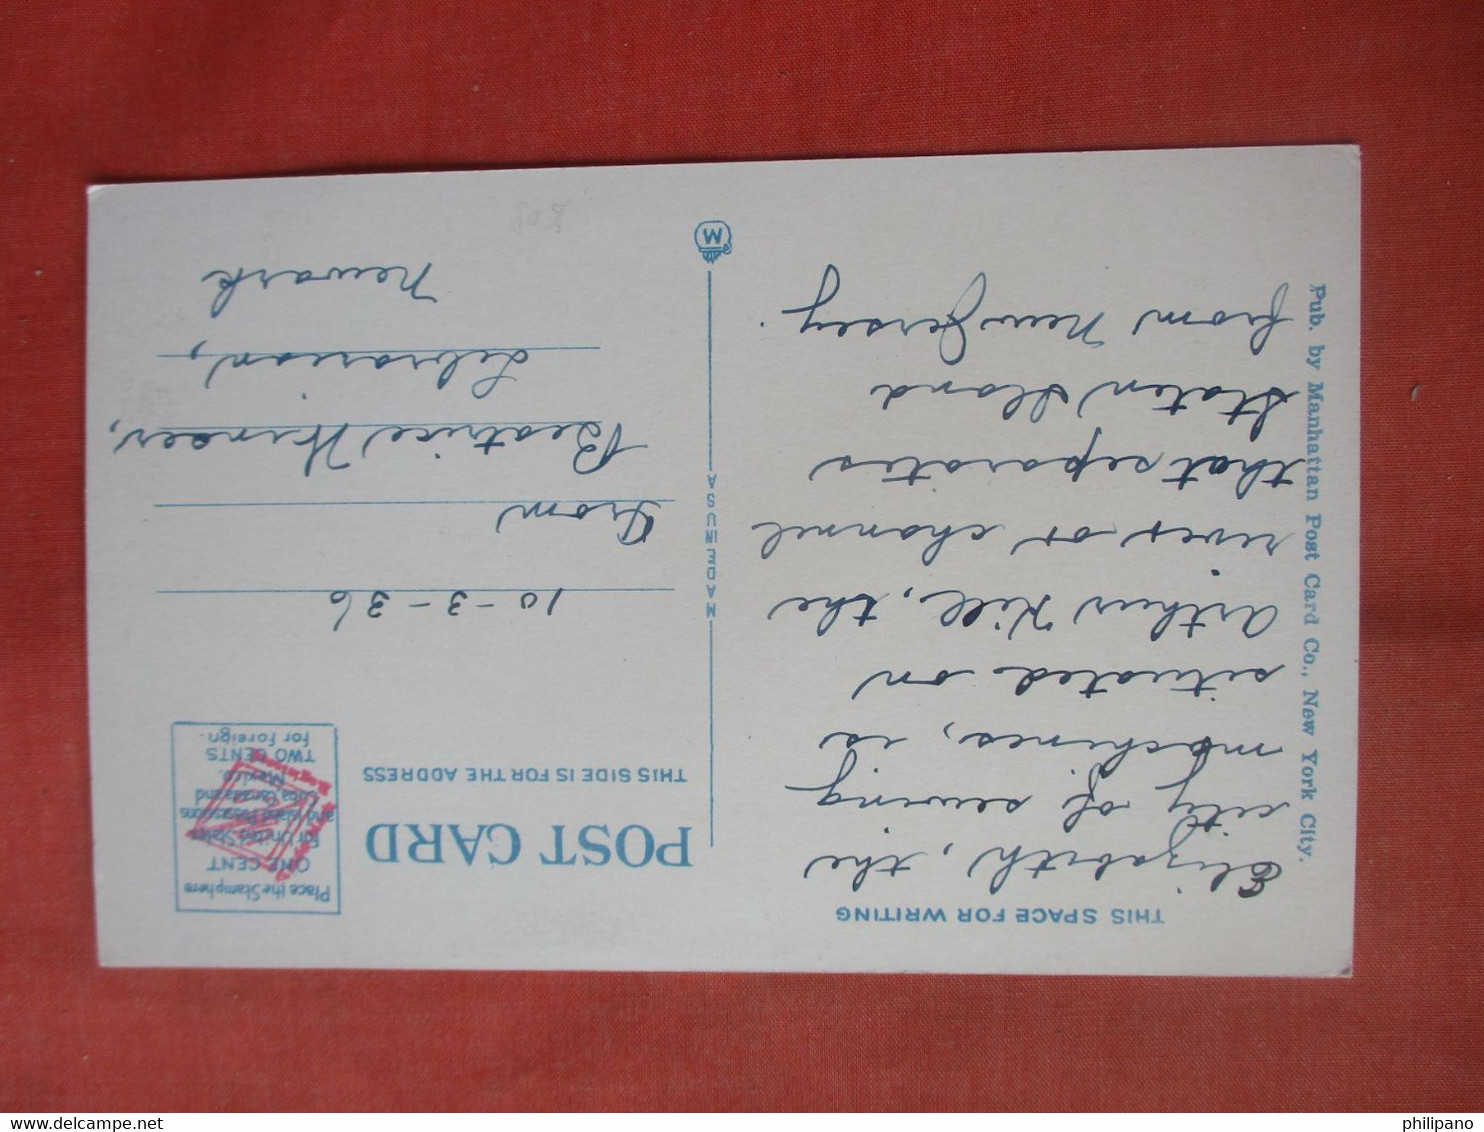 THIS SPACE FOR WRITING
Elizabeth, the
city of sewing
machines, is
situated on
Arthur Kill, the
river or channel
that separates
Staten Island
from New Jersey.
Pub. by Manhattan Post Card Co., New York City.
MADE IN USA
M
POST CARD
THIS SIDE IS FOR THE ADDRESS
Place the Stamp here
ONE CENT
for United States
and Island Possessions
Cuba Canada and
Mexico.
TWO CENTS
for Foreign.
10-3-36
From
Beatrice Winser,
Librarian,
Newark
www.delcampe.net
philipano